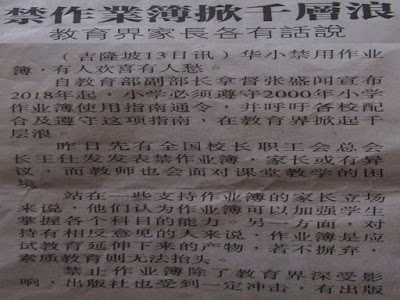 禁作業簿掀千層浪
教育界家長各有話說
（吉隆坡13日讯）华小禁用作业
簿，有人欢喜有人愁。
自教育部副部长拿督张盛闻宣布
2018年起，小学必须遵守2000年小学
作业簿使用指南通令，并呼吁各校配
合及遵守这项指南，在教育界掀起千
层浪。
昨日先有全国校长职工会总会
长王仕发发表禁作业簿，家长或有异
议，而教师也会面对课堂教学的困
境。
站在一些支持作业簿的家长立场
来说，他们认为作业簿可以加强学生
掌握各个科目的能力。另一方面，对
持有相反意见的人来说，作业簿是应
试教育延伸下来的产物，若不摒弃，
素质教育则无法抬头。
禁止作业簿除了教育界深受影
响，出版社也受到一定冲击，有出版